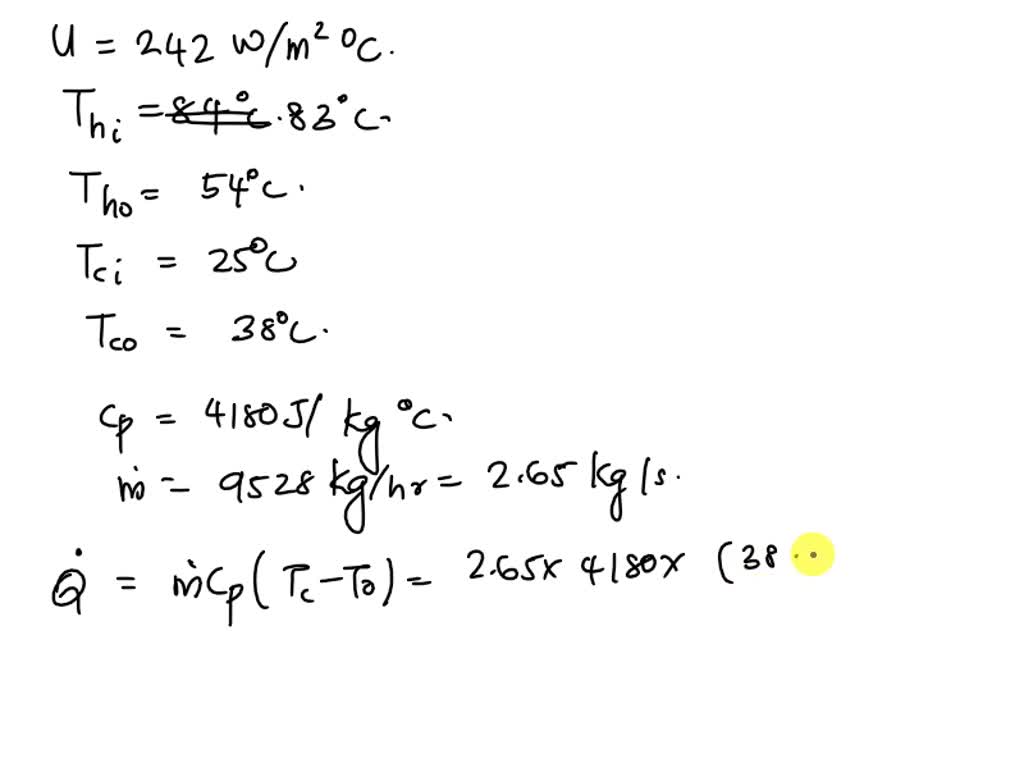 U = 242 W/m² °C.
Thi = 84°C .83°C.
Tho = 54°C.
Tci = 25°C
Tco = 38°C.
Cp = 4180J/ kg °C.
ṁ = 9528 kg/hr = 2.65 kg/s.
Q̇ = ṁCp(Tc-To) = 2.65x 4180x (38